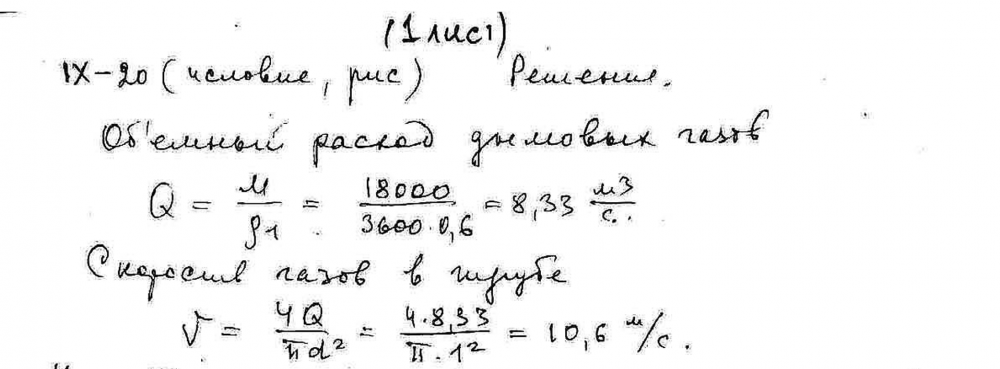 (1 лист)
IX-20 (условие, рис) Решение.
Объемный расход дымовых газов
Q = M/ρ1 = 18000/(3600·0,6) = 8,33 м3/с.
Скорость газов в трубе
V = 4Q/(πd²) = 4·8,33/(π·1²) = 10,6 м/с.